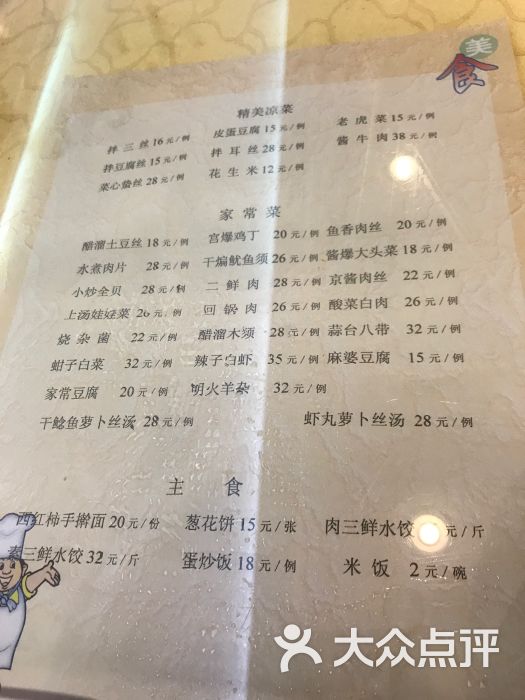 美食
精美凉菜
拌三丝 16元/例 皮蛋豆腐 15元/例 老虎菜 15元/例
拌豆腐丝 15元/例 拌耳丝 28元/例 酱牛肉 38元/例
菜心蛰丝 28元/例 花生米 12元/例
家常菜
醋溜土豆丝 18元/例 宫爆鸡丁 20元/例 鱼香肉丝 20元/例
水煮肉片 28元/例 干煸鱿鱼须 26元/例 酱爆大头菜 18元/例
小炒全贝 28元/例 二鲜肉 28元/例 京酱肉丝 22元/例
上汤娃娃菜 26元/例 回锅肉 26元/例 酸菜白肉 26元/例
烧杂菌 22元/例 醋溜木须 28元/例 蒜台八带 32元/例
蚶子白菜 32元/例 辣子白虾 35元/例 麻婆豆腐 15元/例
家常豆腐 20元/例 明火羊杂 32元/例
干鲶鱼萝卜丝汤 28元/例 虾丸萝卜丝汤 28元/例
主食
西红柿手擀面 20元/份 葱花饼 15元/张 肉三鲜水饺 元/斤
素三鲜水饺 32元/斤 蛋炒饭 18元/例 米饭 2元/碗
大众点评